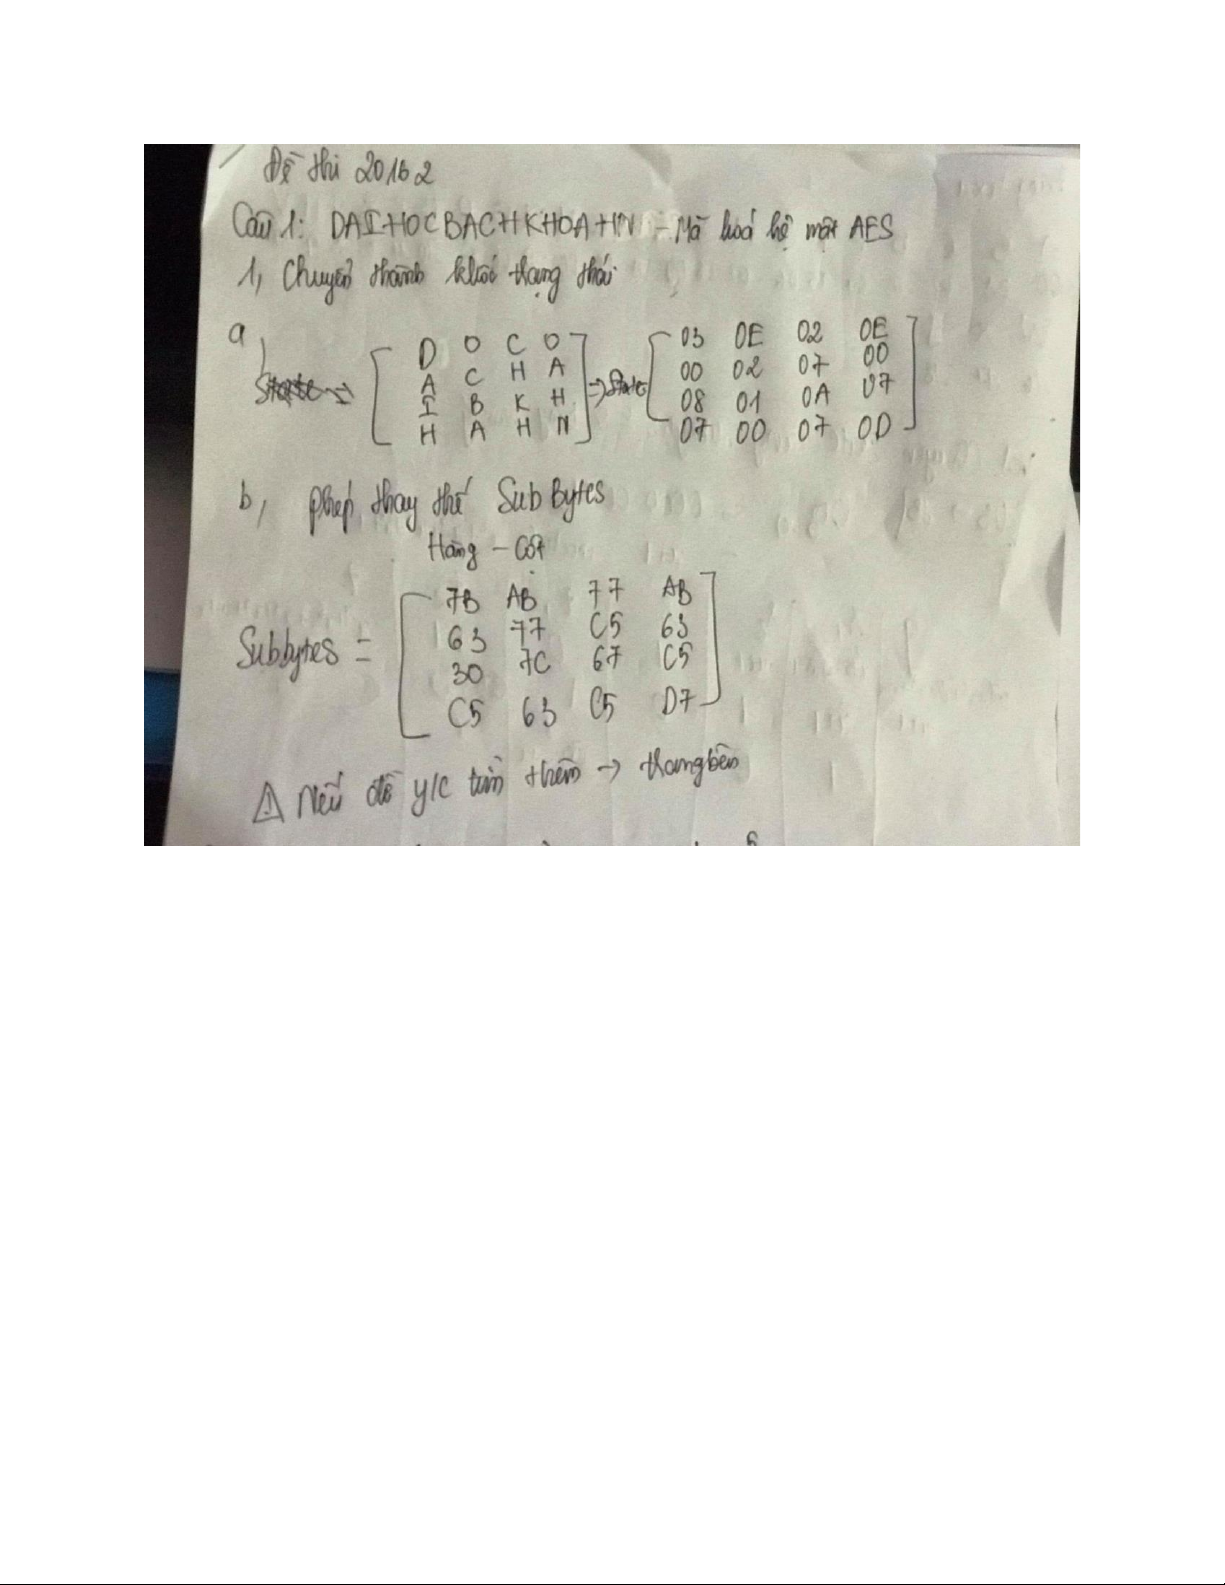 Đề thi 20162
Câu 1: DAIHOCBACHKHOAHN - Mã hoá hệ mật AES
1, Chuyển thành khối trạng thái
a,
D O C O 03 0E 02 0E
A C H A 00 02 07 00
State => => State
I B K H 08 01 0A 07
H A H N 07 00 07 0D
b, phép thay thế SubBytes
Hàng - Cột
7B AB 77 AB
63 77 C5 63
Subbytes =
30 7C 67 C5
C5 63 C5 D7
⚠ Nếu đề y/c tìm thêm → trang bên